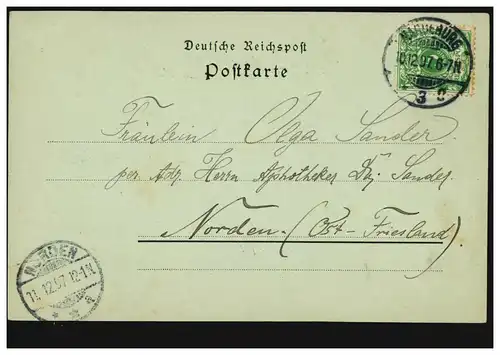 Deutsche Reichspost
Postkarte
MAGDEBURG
10.12.97.6-7N
3 c
Fräulein Olga Sander.
per Adr. Herrn Aphotheker Sander
Norden. (Ost-Friesland)
NORDEN
11.12.97.12-1N
* * a